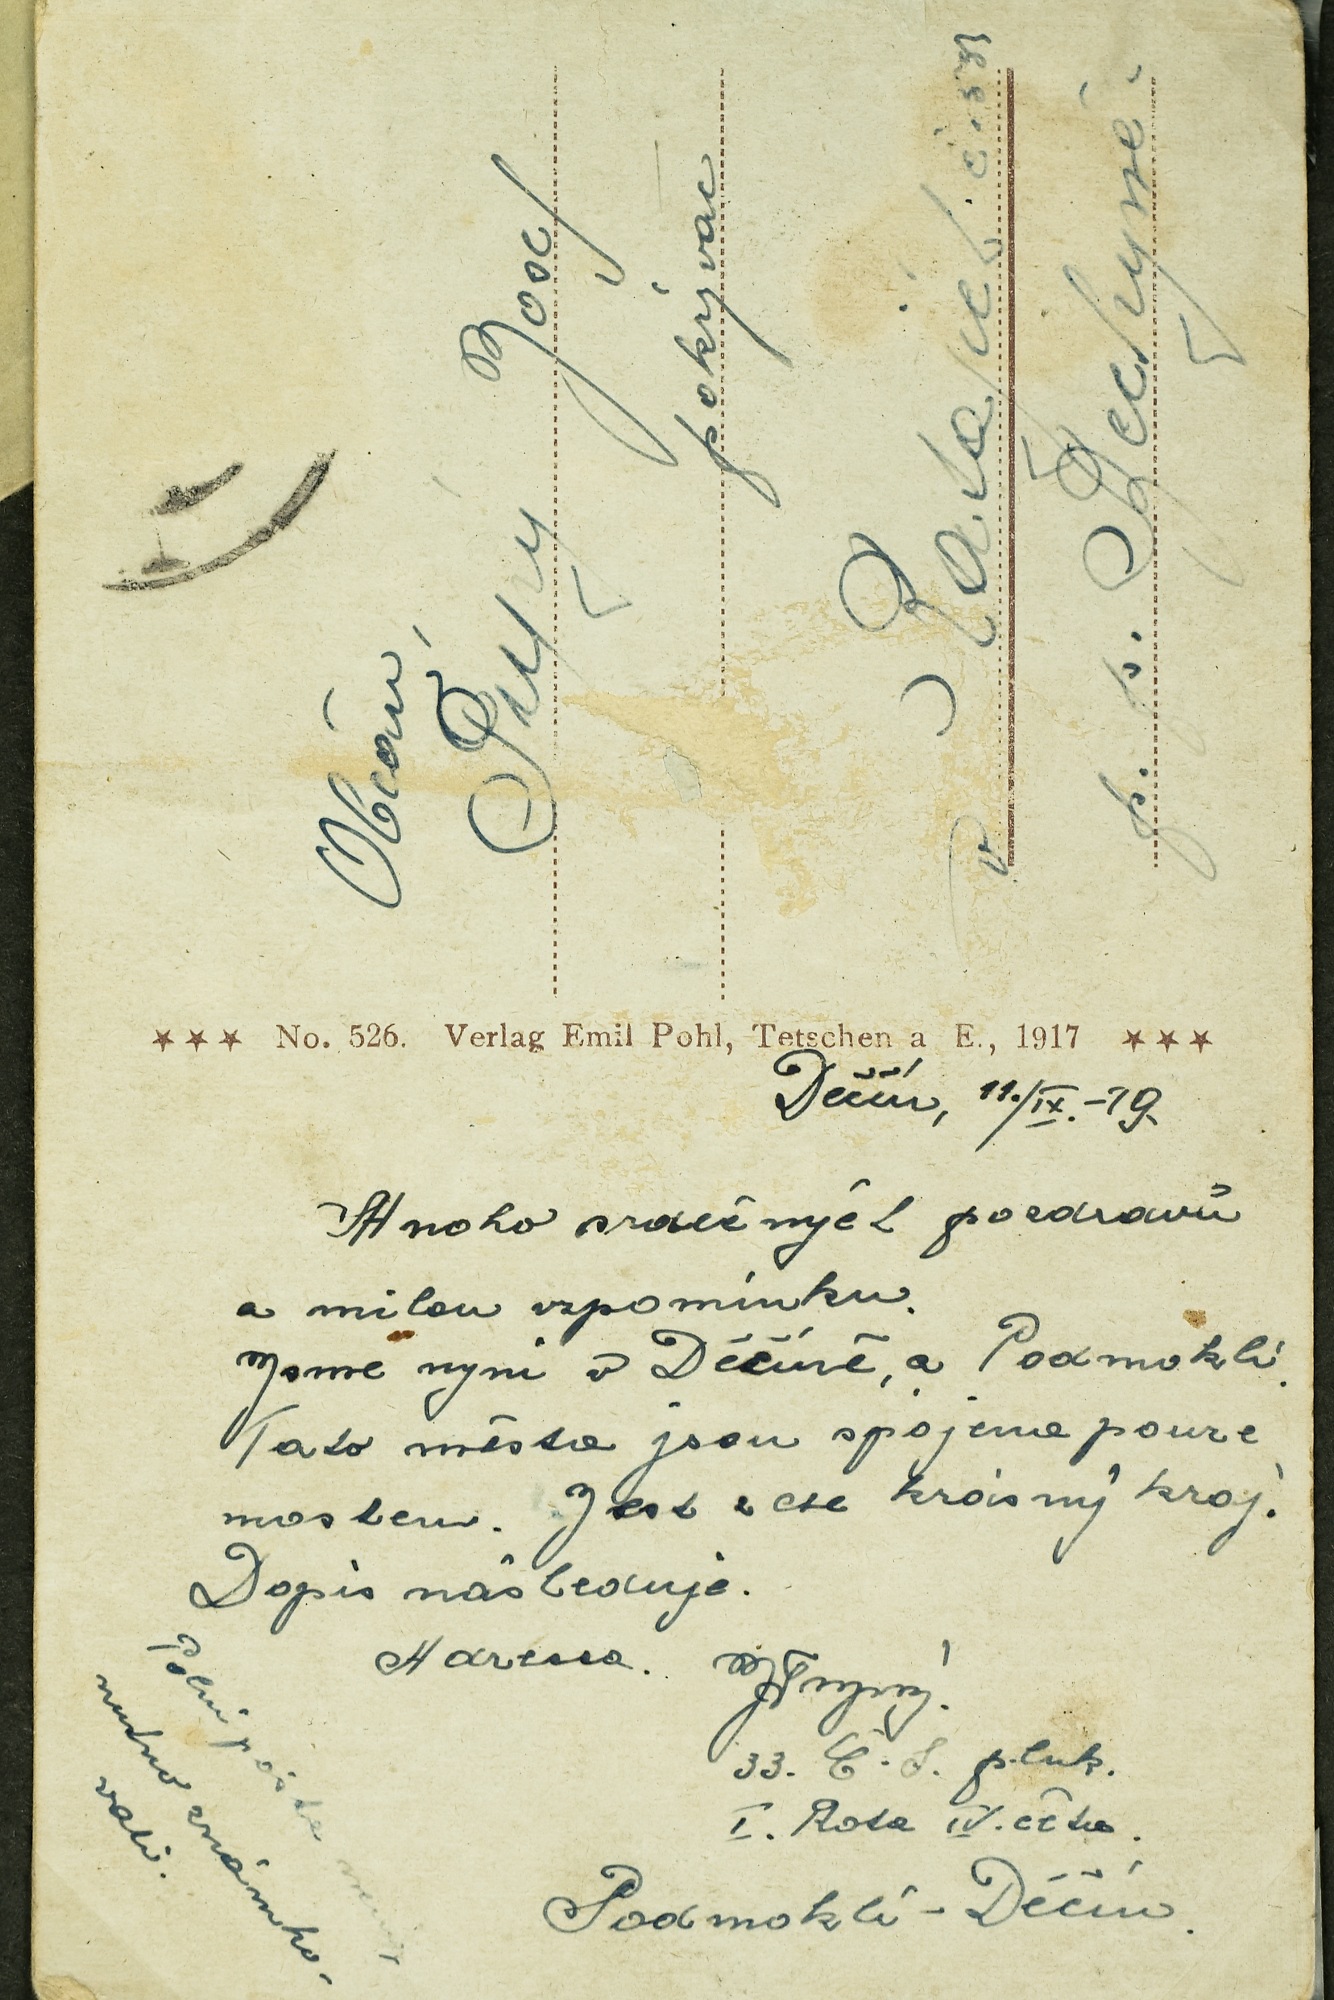 Občan
Josef
pokrývač
v
č. 57
p. p. Bechyně.
*** No. 526. Verlag Emil Pohl, Tetschen a E., 1917 ***
Děčín, 11./IX.-19.
Mnoho srdečných pozdravů
a milou vzpomínku.
Jsme nyní v Děčíně, a Podmoklí.
Tato města jsou spojena pouze
mostem. Jest zde krásný kraj.
Dopis následuje.
Adressa.
33. Č. S. pluk.
I. Rota IV. četa.
Podmoklí - Děčín.
Polní pošta není
nutno známko-
vati.